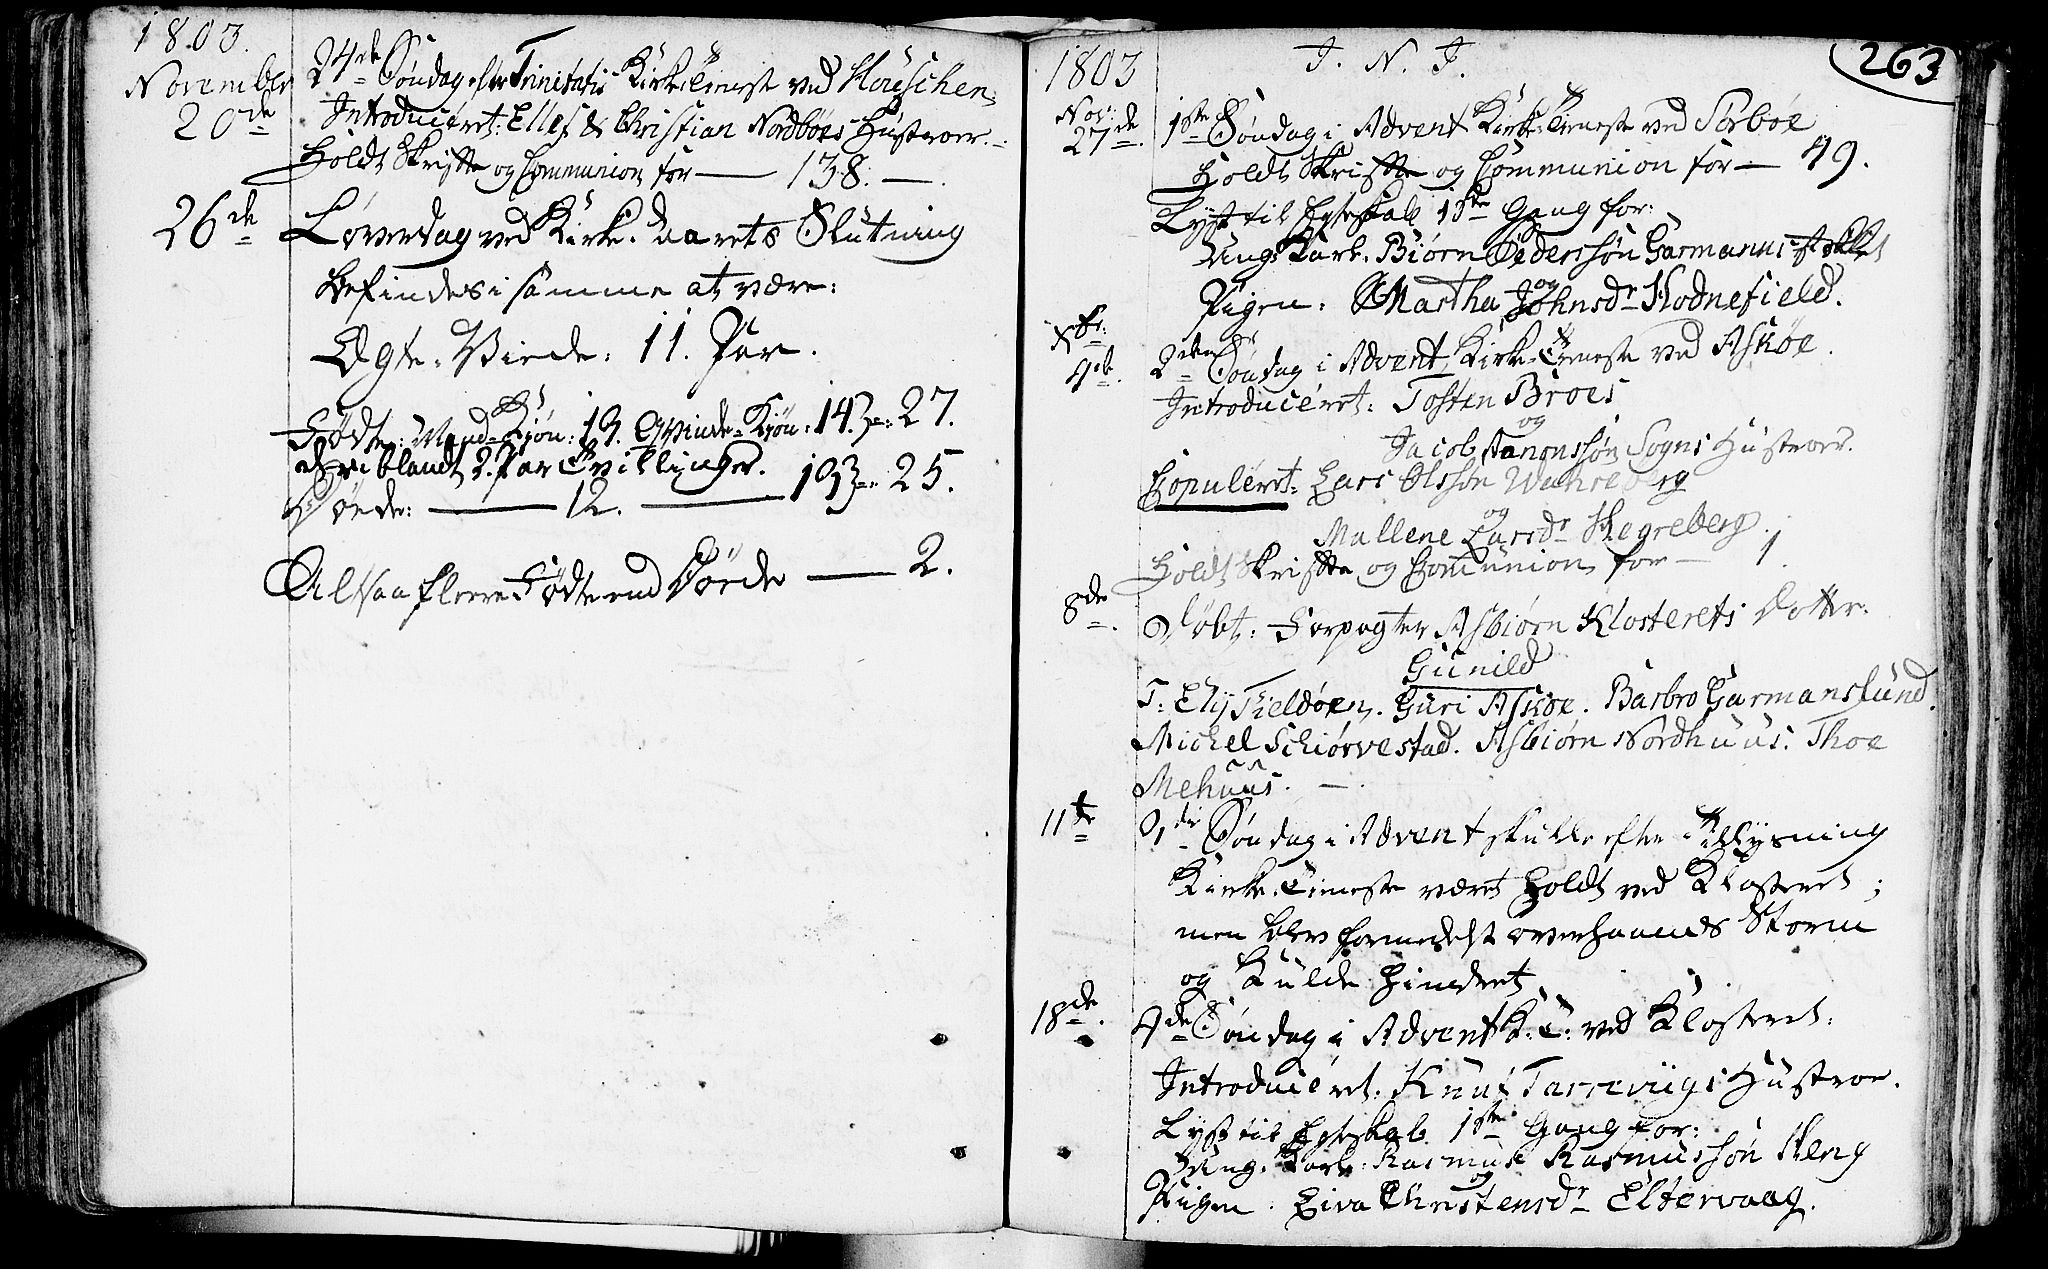 1803.
November
20de
24de Søndag efter Trinitatis Kirke-Tieneste ved Houschen,
Introduceret: Ellef & Christian Nordbøes Hustroer. –
Holdt Skrifte og Communion for — 138. —
26de
Løverdag ved Kirke-Aarets Slutning
befindes i samme at være:
Ægte-Viede: 11. Par.
Fødte: Mand-Kiøn: 13. Qvinde-Kiøn: 14. 27.
deriblandt 2. Par Tvillinger.
Døde: — 12. — 13 25.
Altsaa fleere Fødte end Døde — 2.
263
1803
J. N. J.
Nov:
27de.
1ste Søndag i Advent Kirke-Tieneste ved Sørbøe
Holdt Skrifte og Communion for — 49.
Lyst til Egteskab 1ste Gang for:
Ung-Karl. Biørn Pedersøn Garmanns
og
Pigen: Martha Johnsdr Hodnefield.
Xbr:
4de.
2den Søndag i Advent, Kirke-Tieneste ved Askøe.
Introduceret: Tosten Broes
og
Jacob Aanonssøn Sogns Hustroer.
Copuleret: Lars Olssøn Wahreberg
og
Mallene Larsdr Hegreberg.
Holdt Skrifte og Communion for — 1.
8de.
Døbt: Forpagter Asbiørn Klosterets Dotter:
Gunild
T: Elj Fieldøen. Guri Askøe. Barbro Garmanslund.
Michel Schiørvestad. Asbiørn Nordhuus. Thoe
Mehuus. —
11te
3die Søndag i Advent skulle efter Tillysning
Kirke-Tieneste været holdt ved Klosteret;
men blev formedelst overhaands Storm
og Kulde hindret
18de.
4de Søndag i Advent K: T: ved Klosteret:
Introduceret: Knut Tarreviigs Hustroe.
Lyst til Egteskab 1ste Gang for:
Ung-Karl: Rasmus Rasmussøn Heng
og
Pigen: Siva Christensdr Eltervaag.